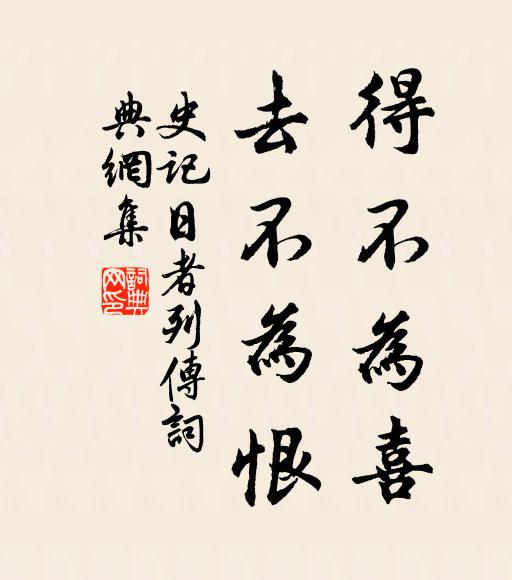 得不為喜
去不為恨
史記日者列傳詞
典網集
詞典
网印